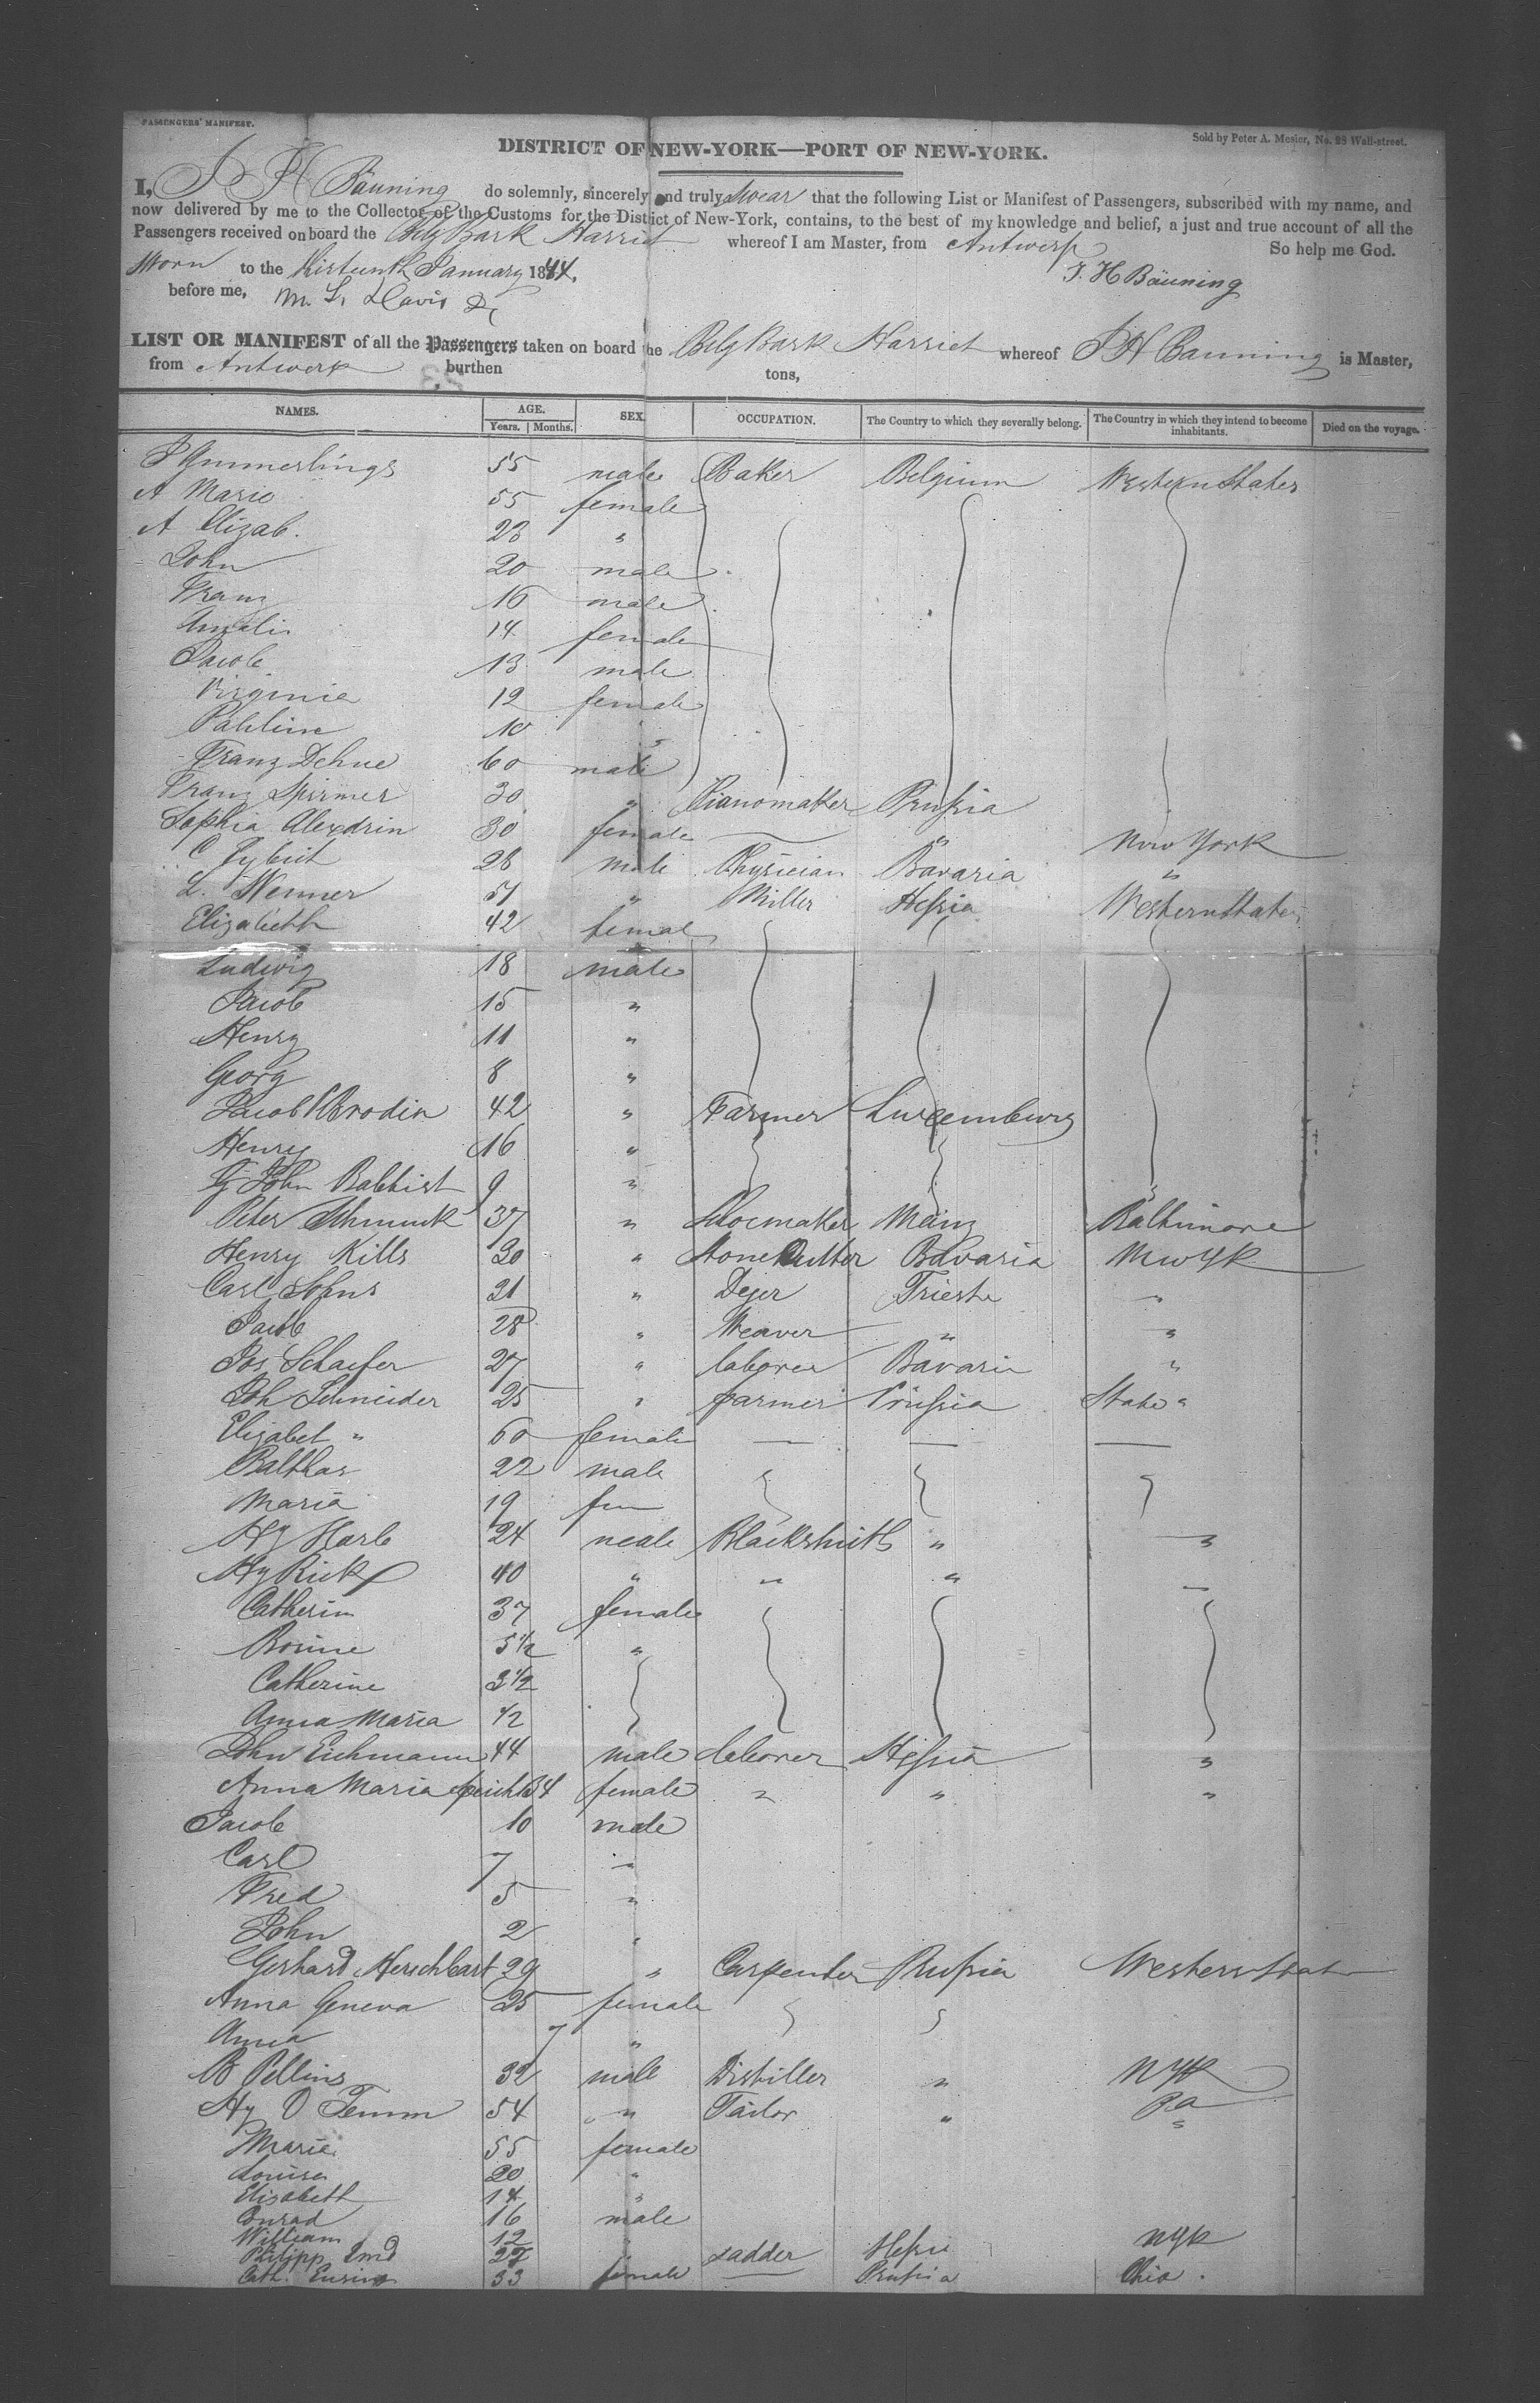 PASSENGERS' MANIFEST.
Sold by Peter A. Mesier, No. 28 Wall-street.
DISTRICT OF NEW-YORK—PORT OF NEW-YORK.
I, J H Bäuning do solemnly, sincerely and truly swear that the following List or Manifest of Passengers, subscribed with my name, and
now delivered by me to the Collector of the Customs for the District of New-York, contains, to the best of my knowledge and belief, a just and true account of all the
Passengers received on board the Belg Bark Harriet whereof I am Master, from Antwerp So help me God.
Sworn to the January 1844. J. H Bäuning
before me, M. L. Davis
LIST OR MANIFEST of all the Passengers taken on board the Belg Bark Harriet whereof J H Bauning is Master,
from Antwerp burthen tons,
NAMES. AGE. SEX. OCCUPATION. The Country to which they severally belong. The Country in which they intend to become inhabitants. Died on the voyage.
Years. Months.
55 male Baker Belgium Western States
A Marie 55 female
A Elizab. 23 "
John 20 male
Franz 16 male
14 female
Jacob 13 male
Virginia 12 female
Pauline 10 "
Franz Dehue 60 male
Franz Spirmer 30 " Pianomaker Prussia
Sophia Alexdrin 30 female " New York
C 28 male Physician Bavaria "
L. Wenner 51 " Miller Hessia Western States
Elizabeth 42 female
Ludwig 18 male
Jacob 15 "
Henry 11 "
Georg 8 "
Jacob 42 " Farmer Luxemburg
Henry 16 "
John Babtist 9 "
Peter Schmuck 37 " Shoemaker Mainz Baltimore
Henry Kills 30 " Stone Cutter Bavaria NewYk
Carl Sohns 21 " Deyer Trieste "
Jacob 28 " Weaver " "
Jos Schaefer 27 " laborer Bavaria "
Joh Schneider 25 " farmer Prussia State "
Elizabet " 60 female
Balthas 22 male
Maria 19 fem
Hy Harb 24 male Blacksmith " "
Hy Rick 40 " " " "
Catherin 37 female
Rosine 5 1/2 "
Catherine 3 1/2
Anna Maria 1/2
John Eichmann 44 male laborer Hessia "
Anna Maria 34 female " " "
Jacob 10 male
Carl 7 "
Fried 5 "
John 2 "
Gerhard Herschbart 29 " Carpenter Prussia Western State
Anna Geneva 25 female
Anna 7 "
B Pellins 32 male Distiller " NYk
Hy O Temm 54 " Tailor " Pa
Maria 55 female "
Louisa 20 "
Elisabeth 14 "
Conrad 16 male
William 12 "
Philipp Emd 27 " sadder Hessie NYk
Cath. 33 female Prussia Ohio.